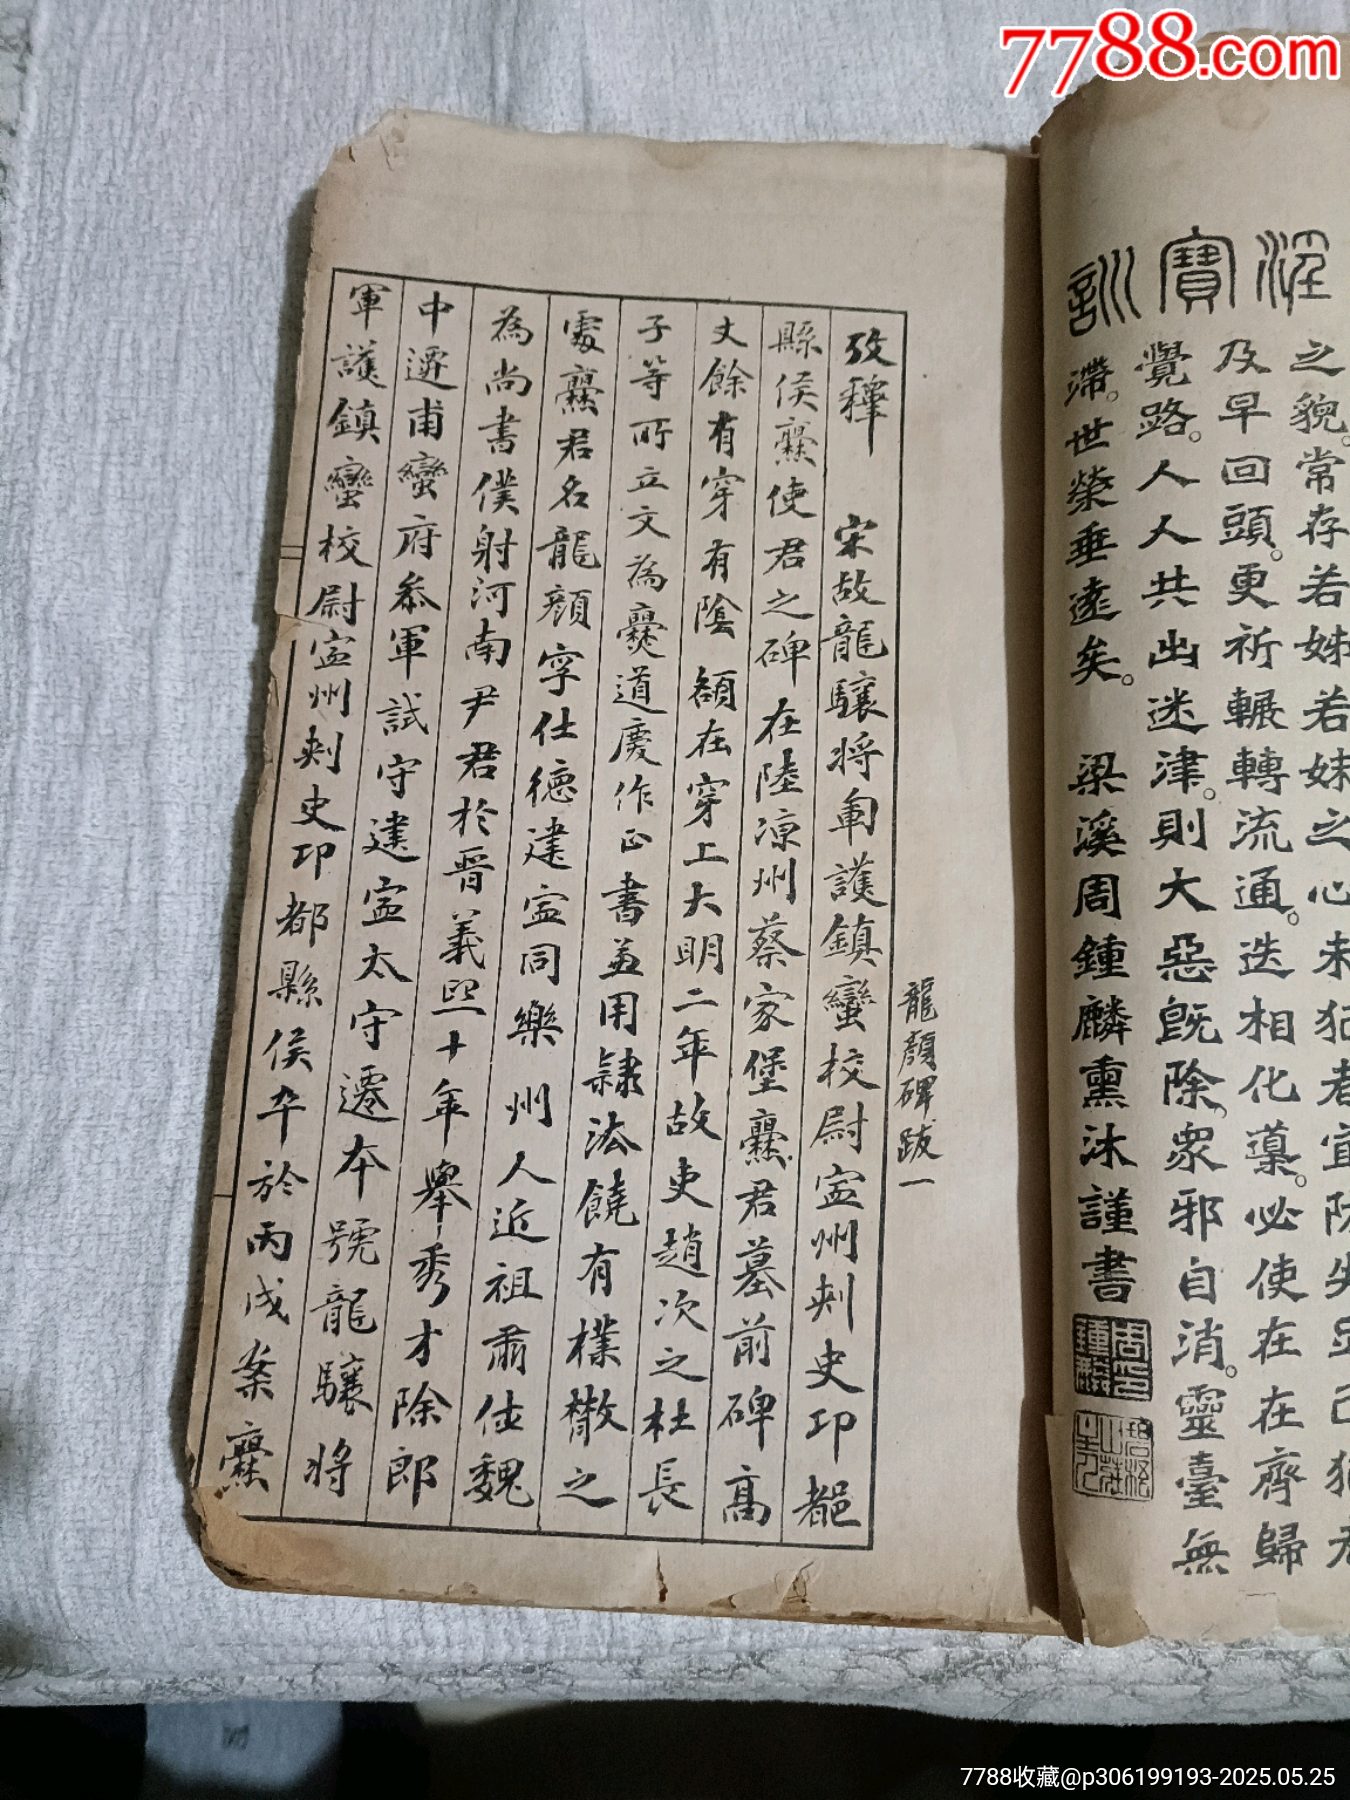 7788.com
淫寶訓
之貌。常存若姊若妹之心未犯者宜防失足已犯者
及早回頭。更祈輾轉流通。迭相化導。必使在在齊歸
覺路。人人共出迷津。則大惡既除。眾邪自消。靈臺無
滯。世榮垂遠矣。梁溪周鍾麟熏沐謹書
龍顏碑跋一
攷釋 宋故龍驤將軍護鎮蠻校尉寍州刺史邛都
縣侯爨使君之碑在陸涼州蔡家堡爨君墓前碑高
丈餘有穿有陰額在穿上大明二年故吏趙次之杜長
子等所立文為爨道慶作正書並用隸法饒有樸散之
處爨君名龍顏字仕德建寍同樂州人近祖肅仕魏
為尚書僕射河南尹君於晉義熙十年舉秀才除郎
中遷南蠻府叅軍試守建寍太守遷本號龍驤將
軍護鎮蠻校尉寍州刺史邛都縣侯卒於丙戌案爨
7788收藏@p306199193-2025.05.25